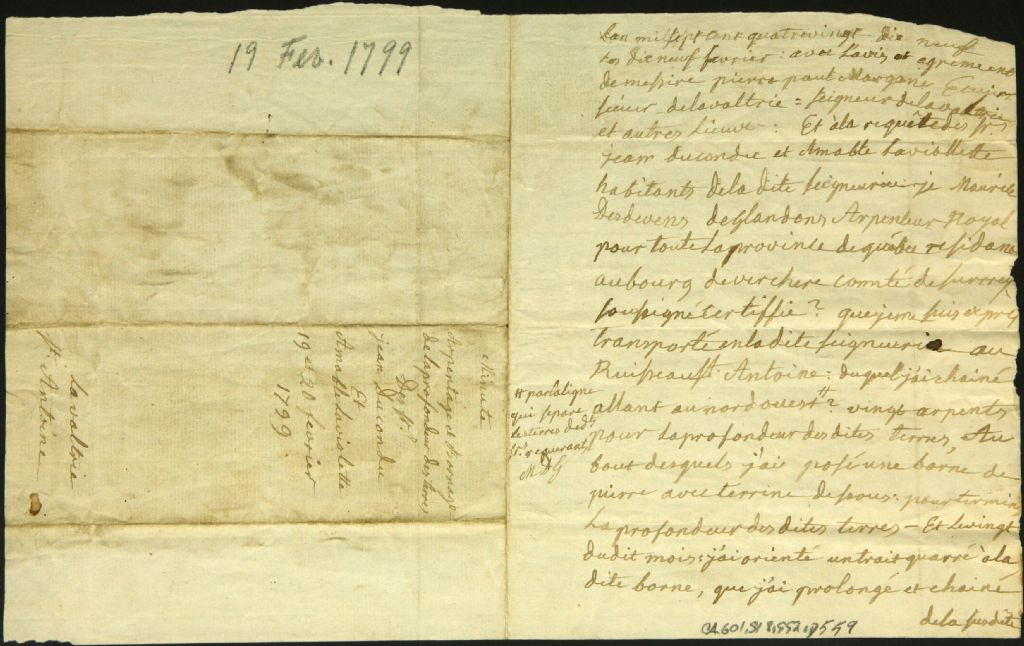 19 Fev. 1799
Minute
Arpentage et Bornage
de la profondeur des terres
Des Srs
jean Ducondu
Et
Amable Laviolette
19 et 20 fevrier
1799
Lavaltrie
St. Antoine
Lan mil sept cent quatrevingt dix neuf
Le dix neuf fevrier : avec Lavis et agrément
de messire pierre paul Margane Ecuier
sieur delavaltrie = seigneur delavaltrie
et autres Lieux : Et à la requête des srs
jean ducondu et Amable Laviollette
habitants de la dite seigneurie je Mauricle
Desdevens de Glandons Arpenteur Royal
pour toute la province de québec residant
au bourg de verchere comté de surrey
soussigné Certiffie que je me suis exprès
transporté en la dite seigneurie au
Ruisseau St. Antoine : duquel j'ai chainé
allant au nord ouest # vingt arpents
# par la ligne
qui separe
les terres desd.
srs requerants
M DG
pour la profondeur des dites terres, Au
bout desquels j'ai posé une borne de
pierre avec terrine dessous : pour terminer
La profondeur des dites terres — Et Le vingt
dudit mois : j'ai orienté un trait quarré à la
dite borne, que j'ai prolongé et chainé
de la susdite
CA 601, S1